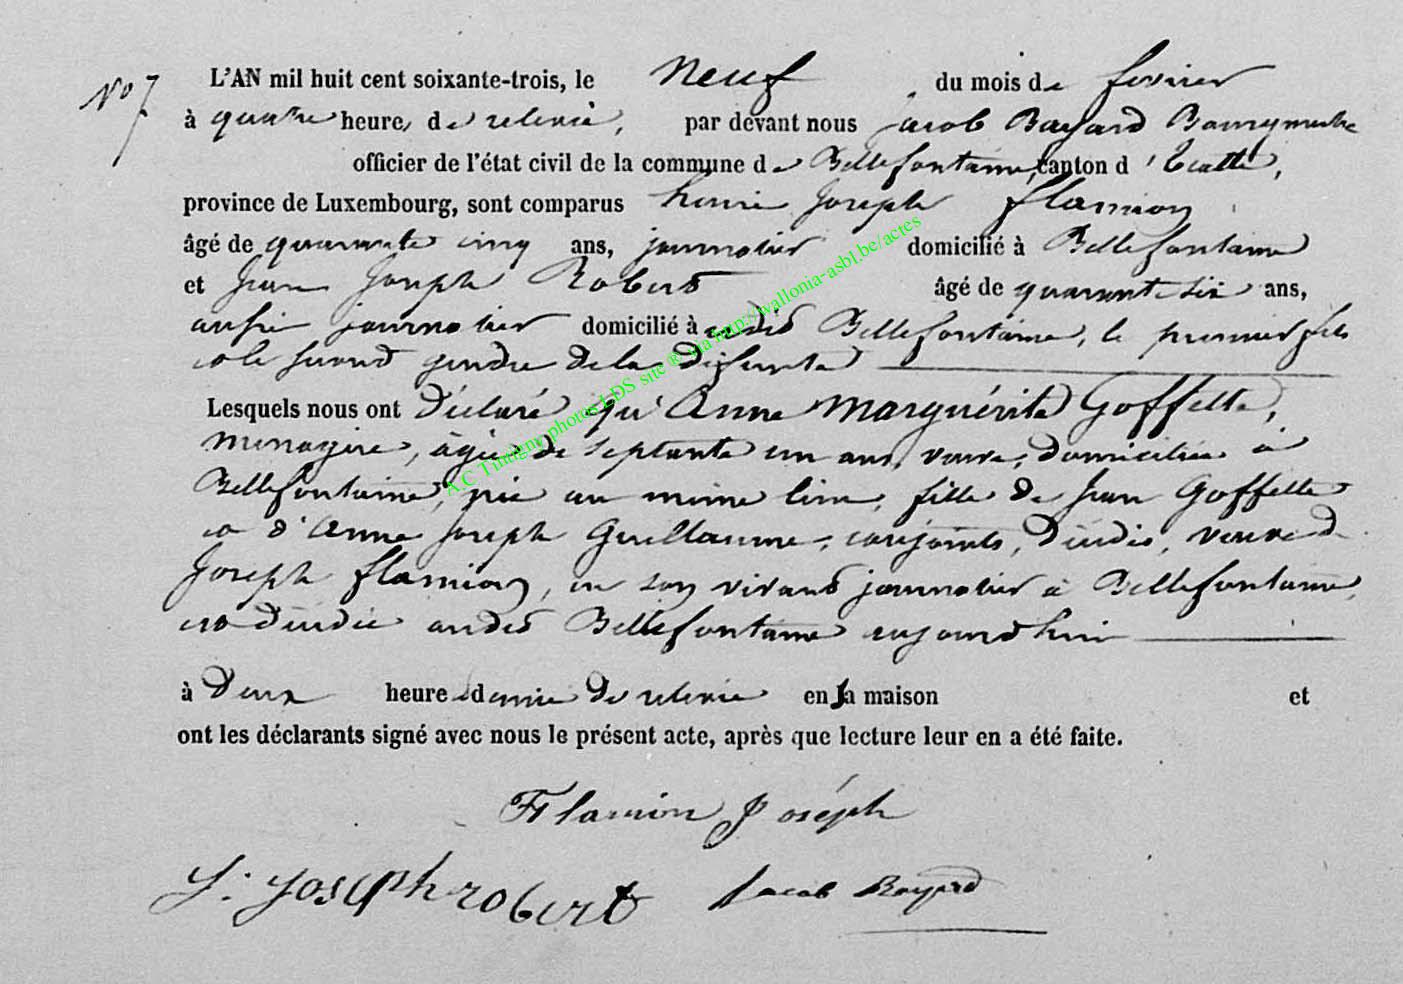 No 7
L'AN mil huit cent soixante-trois, le neuf du mois de fevrier
à quatre heures de relevée, par devant nous Jacob Bayard Bourgmestre
officier de l'état civil de la commune de Bellefontaine, canton d'Etalle,
province de Luxembourg, sont comparus henri Joseph flamion
âgé de quarante cinq ans, journalier domicilié à Bellefontaine
et Jean Joseph Robert âgé de quarante six ans,
aussi journalier domicilié à audit Bellefontaine, le premier fils
et le second gendre de la défunte
Lesquels nous ont déclaré qu'Anne Marguérite Goffette,
menagère, âgée de septante un ans, veuve, domiciliée à
Bellefontaine, née au même lieu, fille de Jean Goffette
et d'Anne Joseph Guillaume, conjoints, décédés, veuve de
Joseph flamion, en son vivant journalier à Bellefontaine,
est décédée audit Bellefontaine aujourd'hui
à Deux heures demie de relevée en sa maison et
ont les déclarants signé avec nous le présent acte, après que lecture leur en a été faite.
Flamion Joséph
J. Joseph robert Jacob Bayard
A.C Tintigny photos LDS site ® via http://wallonia-asbl.be/acres